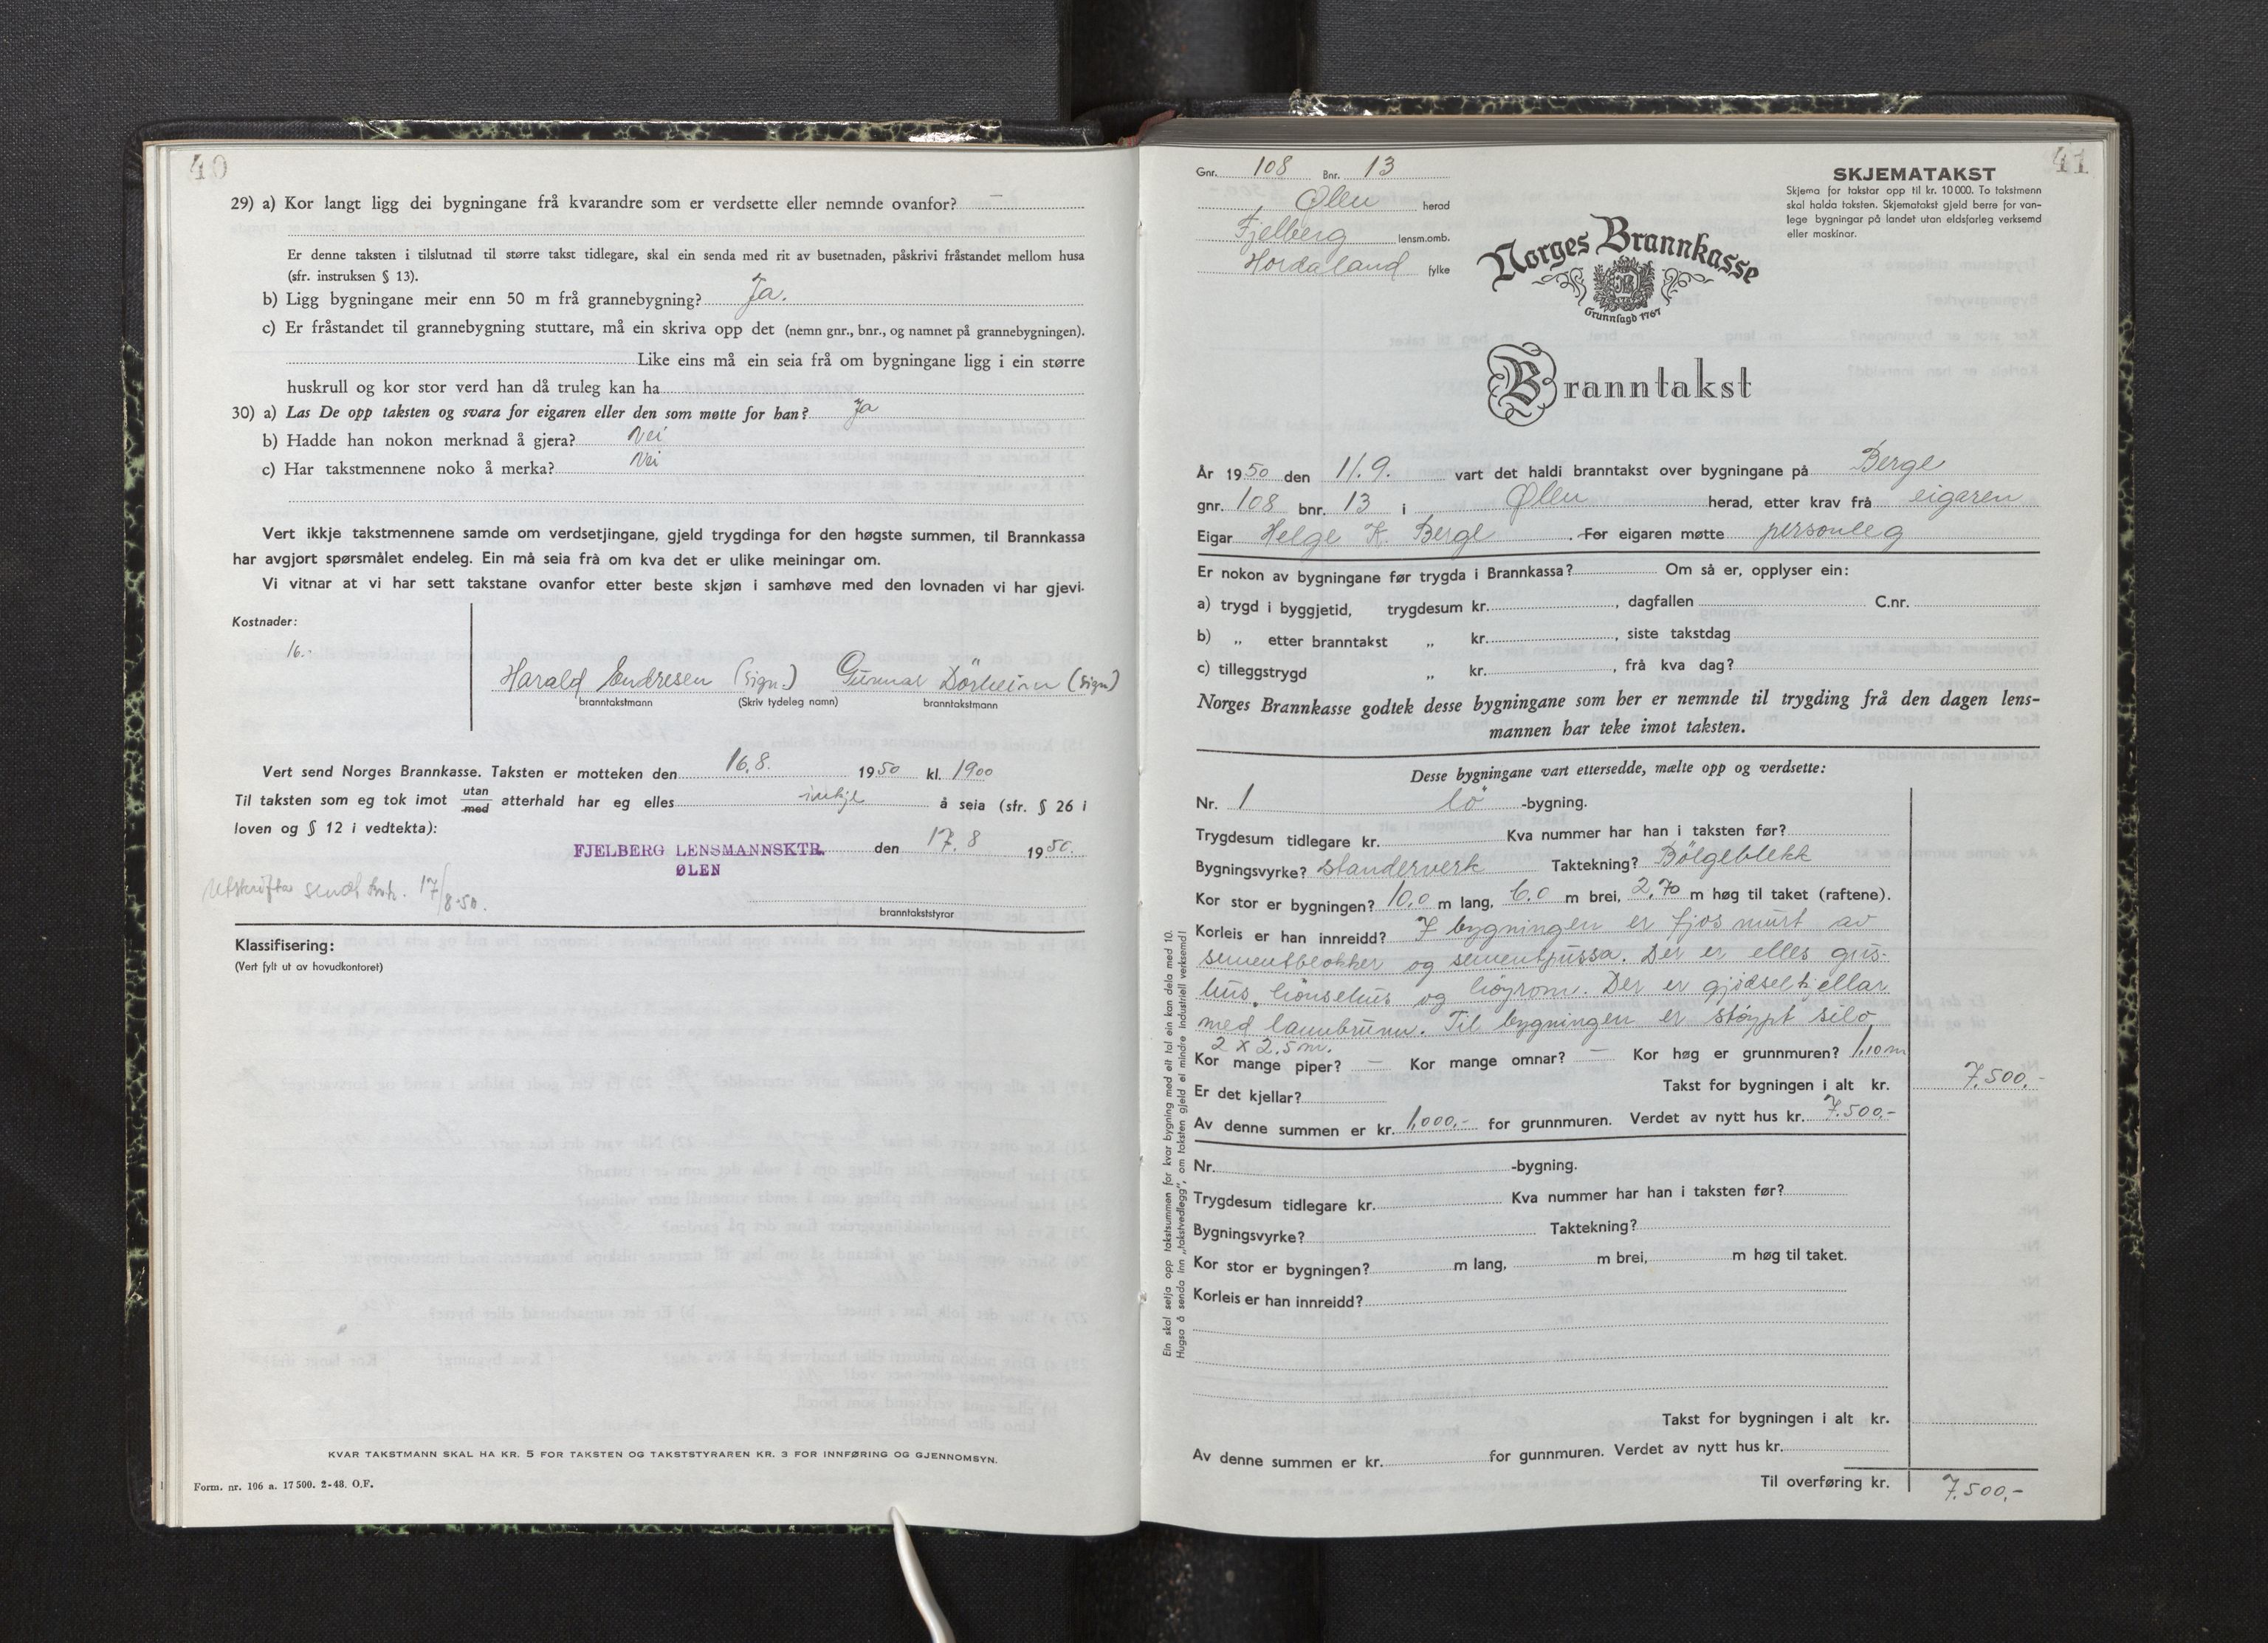 40
29) a) Kor langt ligg dei bygningane frå kvarandre som er verdsette eller nemnde ovanfor? —
Er denne taksten i tilslutnad til større takst tidlegare, skal ein senda med rit av busetnaden, påskrivi fråstandet mellom husa
(sfr. instruksen § 13).
b) Ligg bygningane meir enn 50 m frå grannebygning? Ja.
c) Er fråstandet til grannebygning stuttare, må ein skriva opp det (nemn gnr., bnr., og namnet på grannebygningen).
Like eins må ein seia frå om bygningane ligg i ein større
huskrull og kor stor verd han då truleg kan ha
30) a) Las De opp taksten og svara for eigaren eller den som møtte for han? Ja
b) Hadde han nokon merknad å gjera? Nei
c) Har takstmennene noko å merka? Nei
Vert ikkje takstmennene samde om verdsetjingane, gjeld trygdinga for den høgste summen, til Brannkassa
har avgjort spørsmålet endeleg. Ein må seia frå om kva det er ulike meiningar om.
Vi vitnar at vi har sett takstane ovanfor etter beste skjøn i samhøve med den lovnaden vi har gjevi.
Kostnader:
16.-
Harald Endresen (sign.) Gunnar Dörheim (sign)
branntakstmann (Skriv tydeleg namn) branntakstmann
Vert send Norges Brannkasse. Taksten er motteken den 16.8. 1950 kl. 1900
Til taksten som eg tok imot utan/med atterhald har eg elles inkje å seia (sfr. § 26 i
loven og § 12 i vedtekta):
FJELBERG LENSMANNSKTR. den 17.8 1950.
ØLEN
Utskrifta sendt 17/8-50.
branntakststyrar
Klassifisering:
(Vert fylt ut av hovudkontoret)
KVAR TAKSTMANN SKAL HA KR. 5 FOR TAKSTEN OG TAKSTSTYRAREN KR. 3 FOR INNFØRING OG GJENNOMSYN.
Form. nr. 106 a. 17 500. 2-48. O.F.
41
Gnr. 108 Bnr. 13
Ølen herad
Fjelberg lensm.omb.
Hordaland fylke
SKJEMATAKST
Skjema for takstar opp til kr. 10 000. To takstmenn
skal halda taksten. Skjematakst gjeld berre for van-
lege bygningar på landet utan eldsfarleg verksemd
eller maskinar.
Norges Brannkasse
B
Grunnlagd 1767
Branntakst
År 1950 den 11.9. vart det haldi branntakst over bygningane på Berge
gnr. 108 bnr. 13 i Ølen herad, etter krav frå eigaren
Eigar Helge K. Berge. For eigaren møtte personleg
Er nokon av bygningane før trygda i Brannkassa? Om så er, opplyser ein:
a) trygd i byggjetid, trygdesum kr. , dagfallen C.nr.
b) „ etter branntakst „ kr. , siste takstdag
c) tilleggstrygd „ kr. , frå kva dag?
Norges Brannkasse godtek desse bygningane som her er nemnde til trygding frå den dagen lens-
mannen har teke imot taksten.
Desse bygningane vart ettersedde, mælte opp og verdsette:
Nr. 1 lö -bygning.
Trygdesum tidlegare kr. Kva nummer har han i taksten før?
Bygningsvyrke? standerverk Taktekning? Bölgeblekk
Kor stor er bygningen? 10,0 m lang, 6,0 m brei, 2,70 m høg til taket (raftene).
Korleis er han innreidd? I bygningen er fjos murt av
sementblokker og sementpussa. Der er elles gris-
hus, hönsehus og höyrom. Der er gjödselkjellar
med landbrunn. Til bygningen er støypt silo
2 x 2,5 m.
Kor mange piper? — Kor mange omnar? — Kor høg er grunnmuren? 1,10 m
Er det kjellar? Takst for bygningen i alt kr. 7.500,-
Av denne summen er kr. 1,000,- for grunnmuren. Verdet av nytt hus kr. 7.500,-
Nr. -bygning.
Trygdesum tidlegare kr. Kva nummer har han i taksten før?
Bygningsvyrke? Taktekning?
Kor stor er bygningen? m lang, m brei, m høg til taket.
Korleis er han innreidd?
Takst for bygningen i alt kr.
Av denne summen er kr. for gunnmuren. Verdet av nytt hus kr.
Til overføring kr. 7.500,-
Ein skal setja opp takstsummen for kvar bygning med eit tal ein kan dela med 10.
Hugsa å senda inn „takstvedlegg”, om taksten gjeld ei mindre industriell verksemd!